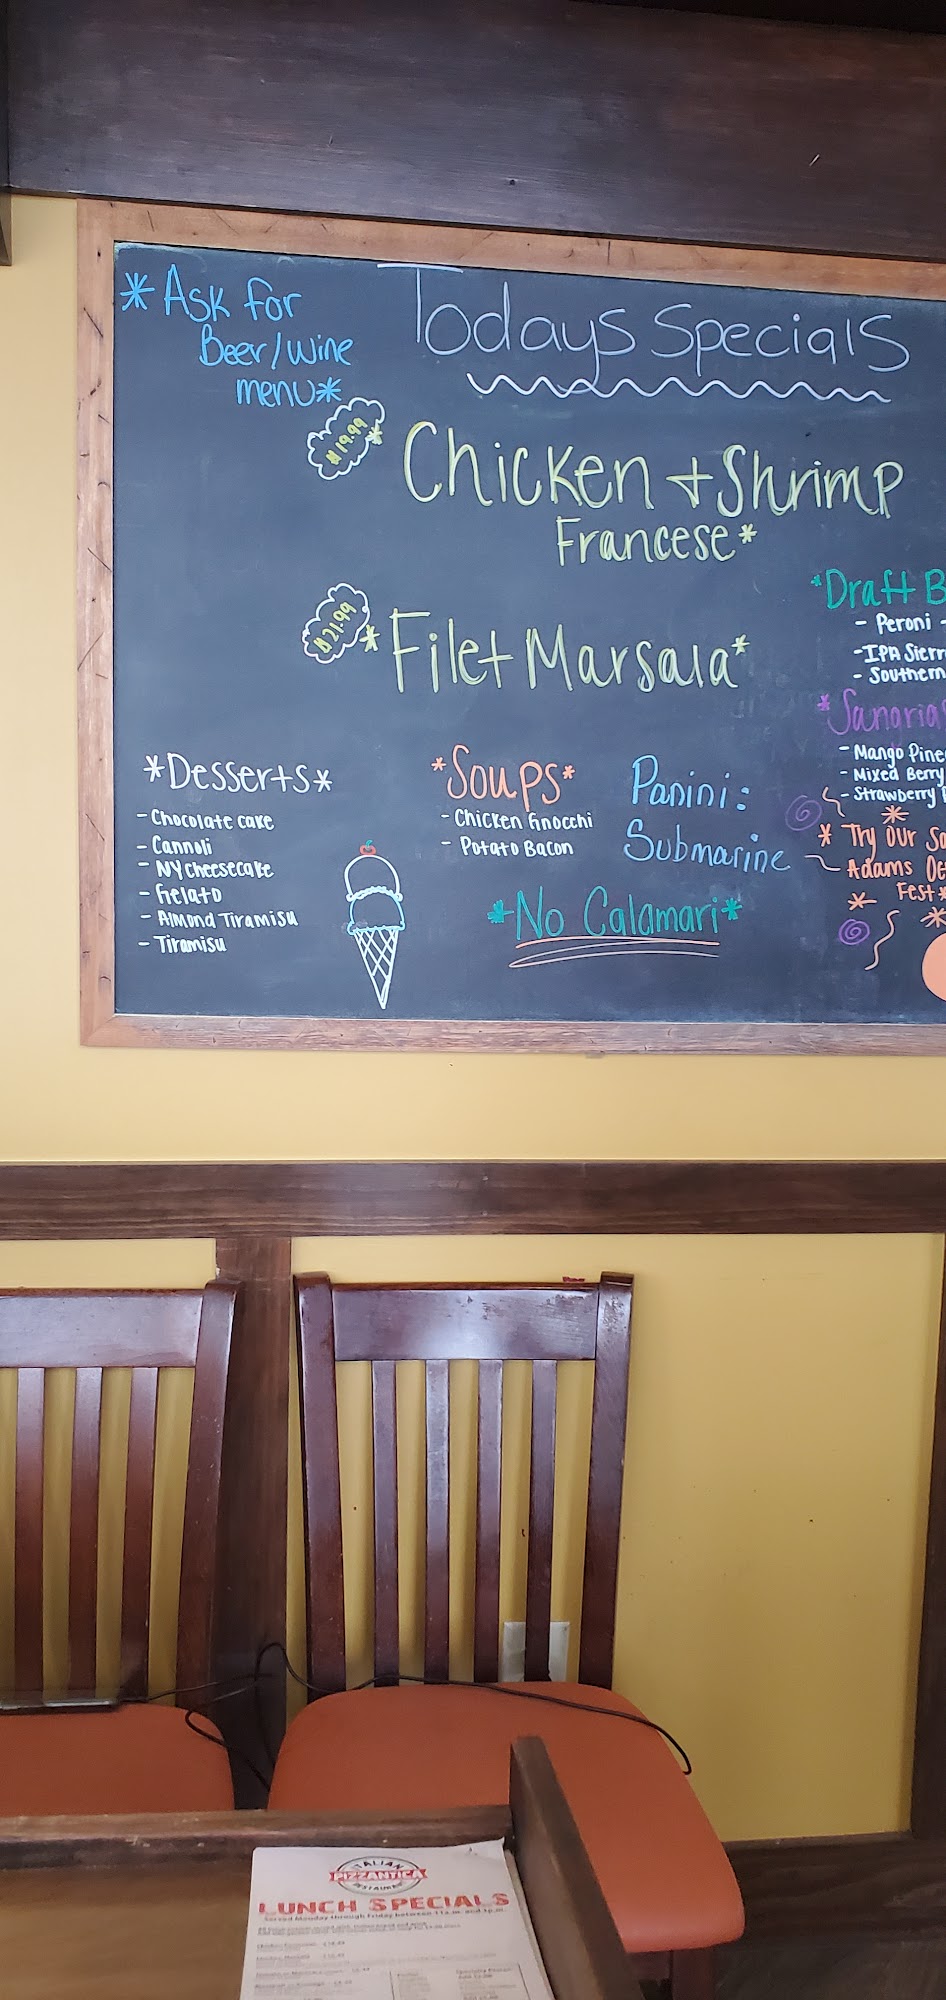 *Ask for
Beer/Wine
menu*
Todays Specials
$19.99
*Chicken + Shrimp
Francese*
$21.99
*Filet Marsala*
*Desserts*
- Chocolate cake
- Cannoli
- NY cheesecake
- Gelato
- Almond Tiramisu
- Tiramisu
*Soups*
- Chicken Gnocchi
- Potato Bacon
Panini:
Submarine
*No Calamari*
*Draft B
- Peroni -
- IPA Sierr
- Southern
*Sangrias
- Mango Pine
- Mixed Berry
- Strawberry
* Try our Sa
Adams
Fest*
ITALIAN
PIZZANTICA
RESTAURANT
LUNCH SPECIALS
Served Monday through Friday between 11a.m. and 3p.m.